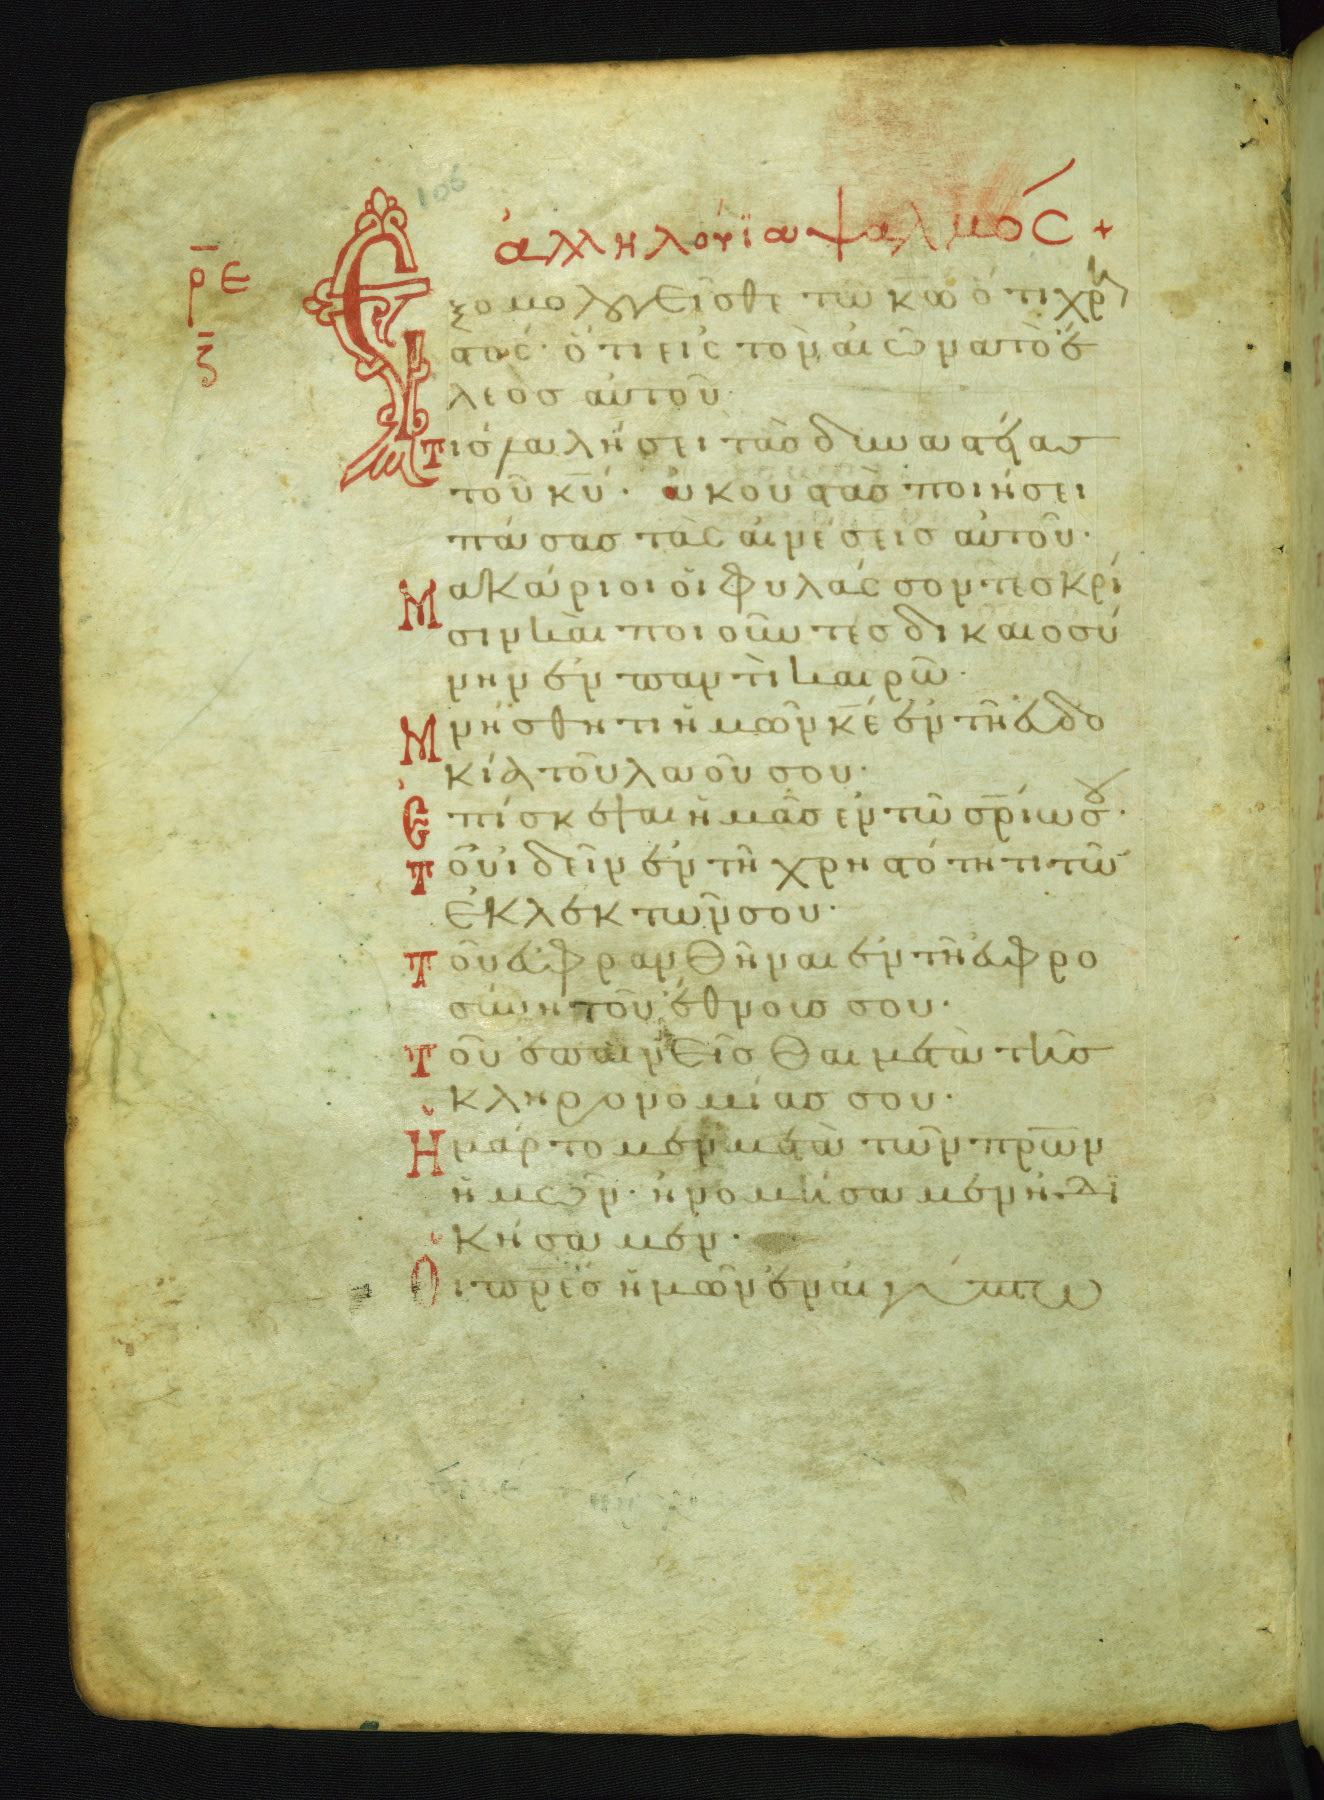 106
ἀλληλούϊα ψαλμός +
ρ̅ε
ζ̅
Ἐξομολογεῖσθε τῶ κ̅ω ὅτι χρη
στός· ὅτι εἰς τὸν αἰῶνα τὸ ἔ
λεος αὐτοῦ·
Τίς λαλήσει τὰς δυναστείας
τοῦ κ̅υ· ἀκουστὰς ποιήσει
πάσας τὰς αἰνέσεις αὐτοῦ·
Μακάριοι οἱ φυλάσσοντες κρί
σιν καὶ ποιοῦντες δικαιοσύ
νην ἐν παντὶ καιρῶ·
Μνήσθητι ἡμῶν κ̅ε ἐν τῆ εὐδο
κία τοῦ λαοῦ σου·
Ἐπίσκεψαι ἡμᾶς ἐν τῶ σ̅ρίω σου·
Τοῦ ἰδεῖν ἐν τῆ χρηστότητι τῶ
ἐκλεκτῶν σου·
Τοῦ εὐφρανθῆναι ἐν τῆ εὐφρο
σύνη τοῦ ἔθνους σου·
Τοῦ ἐπαινεῖσθαι μετὰ τῆς
κληρονομίας σου·
Ἡμάρτομεν μετὰ τῶν π̅ρων
ἡμῶν· ἠνομήσαμεν ἠδι
κήσαμεν·
Οἱ π̅ρες ἡμῶν ἐν αἰγύπτω